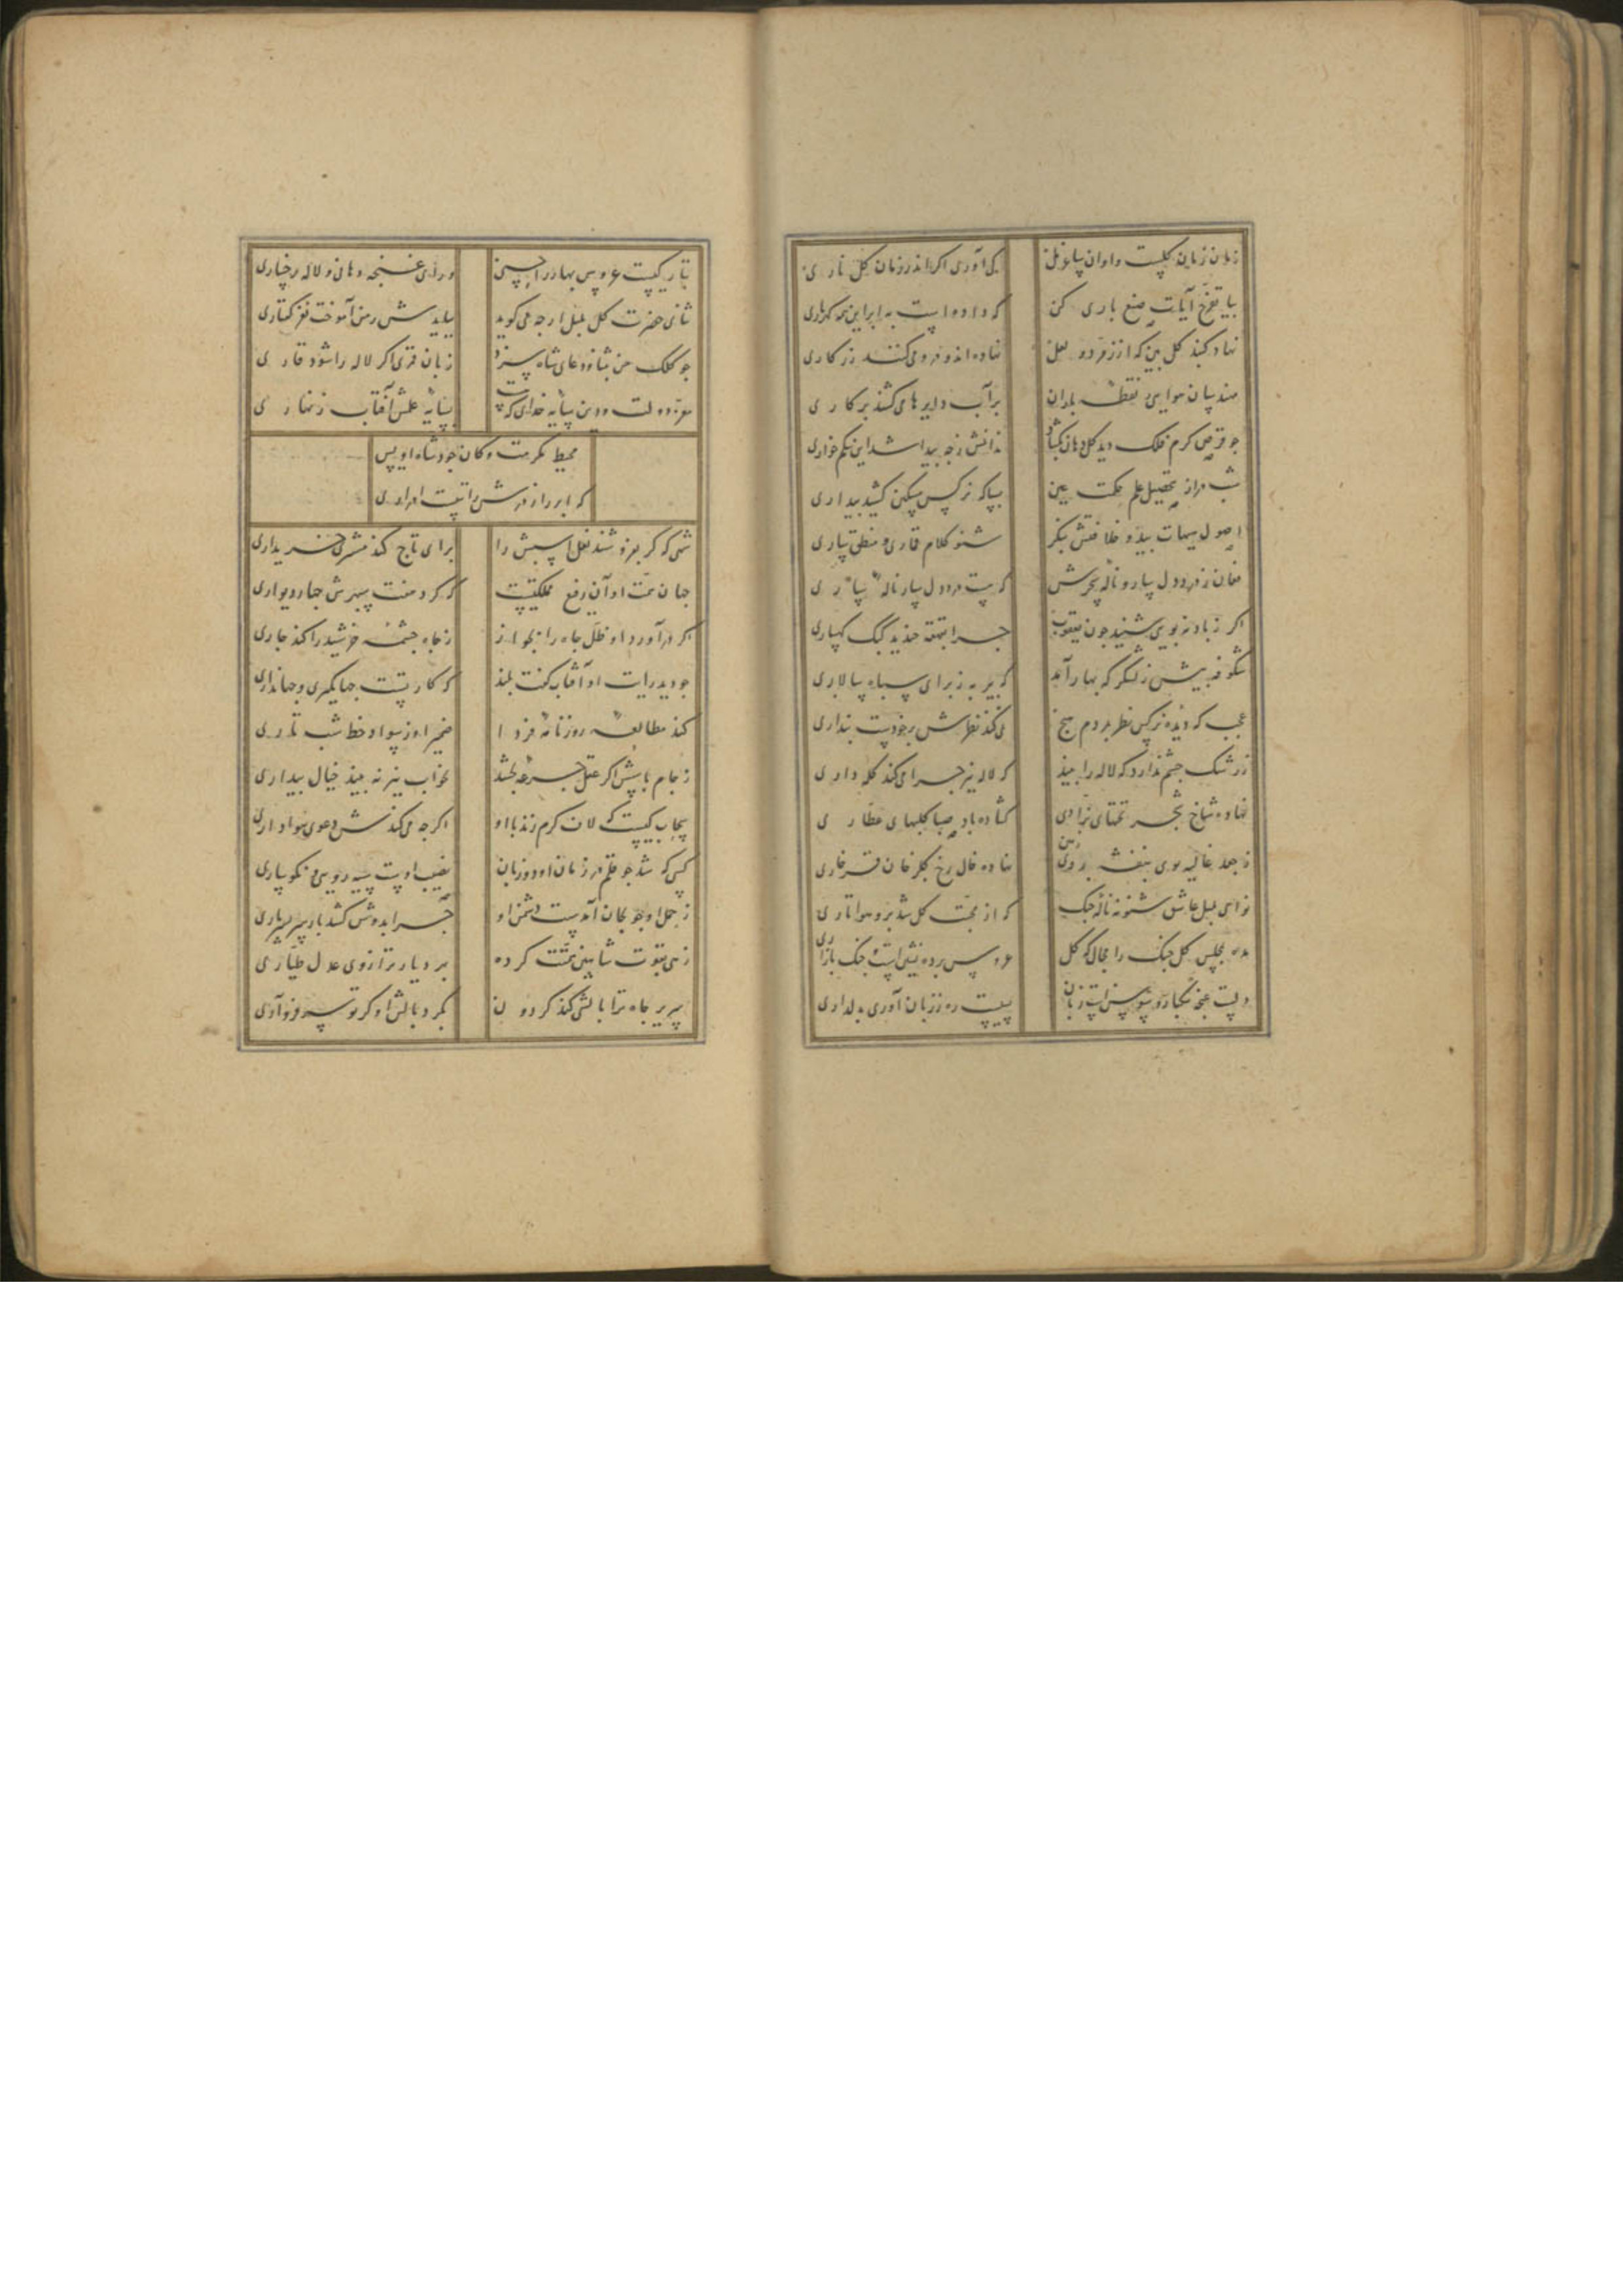 زمان زمان گلست و اوان
کی آوری اگر اندر زمان گل ناری
بیا تفرج آیات صنع باری کن
که داده است به ابر این همه گهرباری
نهاد گنبد گل بین که از زمرد و لعل
نهاده‌اند و درو می‌کنند زرکاری
مهندسان هوایی نقطهٔ باران
بر آب دایرها می‌کشند پرکاری
جو قرص کرم فلک دید گل دهان بگشاد
ندانمش ز جه پیدا شد این شکم خواری
شب دراز تحصیل علم حکمت عین
بسا که نرکس مسکین کشید بیداری
اصول بید و خلافش نکر
شنو کلام قماری و منطق ساری
فغان ز درد دل سار و ناله سحرش
که هست درد دل سار ناله ساری
اکر ز باد نه بویی شنید جون یعقوب
جرا بقهقه خندید کبک کهساری
شکوفه پیش ز لشکر که بهار آمد
که پیر به ز برای سپاه سالاری
عجب که دیده نرکس نظر بمردم هیج
نمی‌کند نظرش بر خودست بنداری
ز رشک جشم ندارد که لاله را بیند
که لاله نیز جرا می‌کند کله داری
نهاده شاخ شجر تختهای بزازی
کشاده باد صبا کلبهای عطاری
ز جعد غالیه بوی بنفشه بر روی زمین
نهاده خال رخ کلرخان فرخاری
نوای بلبل عاشق شنو نه ناله جنک
که از محبت کل شد برو هوا تاری
مده بمجلس کل جنک را مجال که کل
عروس برده نشین است و جنک بازاری
دلست غنجه بیکباره و سوسن است زبان
ببست ره ز زبان آوری بدلداری
نثار کیست عروس بهار را جندین
ورای غنجه دهانی و لاله رخساری
ثنای حضرت کل بلبل ارجه می‌کوید
بیایدش ز من آموخت نغز کفتاری
جو کلک من بثنا و دعای شاه سزد
زبان قمری اکر لاله را شود قاری
معز دولت و دین سایه خدای که هست
بسایه علمش آفتاب زنهاری
محیط مکرمت و کان جود شاه اویس
که ابر راز درش راتبست ادراری
شهی که کر بفروشند نعل اسبش را
برای تاج کند مشتری خریداری
جهان همت او آن رفیع مملکتیست
که کرد هفت سپهرش جهار دیواری
اکر درآورد او ظل جاه را بجواز
ز جاه جشمه خرشید را کند جاری
جو دید رایت او آفتاب کفت بلند
که کار تست جهانکیری و جهانداری
کند مطالعه روزنامه فردا
ضمیر او ز سواد خط شب تاری
ز جام باسش اکر عقل جرعه بخشد
بخواب نیز نه بیند خیال بیداری
سحاب کیست که لاف کرم زند با او
اکرجه می‌کندش دعوی هواداری
کسی که شد جو قلم در زمان او دو زبان
نصیب اوست سیه رویی و نکوساری
ز حمل او جو بجان آمدست دشمن او
جرا بدوش کشد بار سر بسرباری
زهی بقوت شاهین همتت کرده
ببر و یار ترازوی عدل طیاری
سریر جاه ترا بالشی کند کردون
بکرد بالش او کر تو سر فرو آری